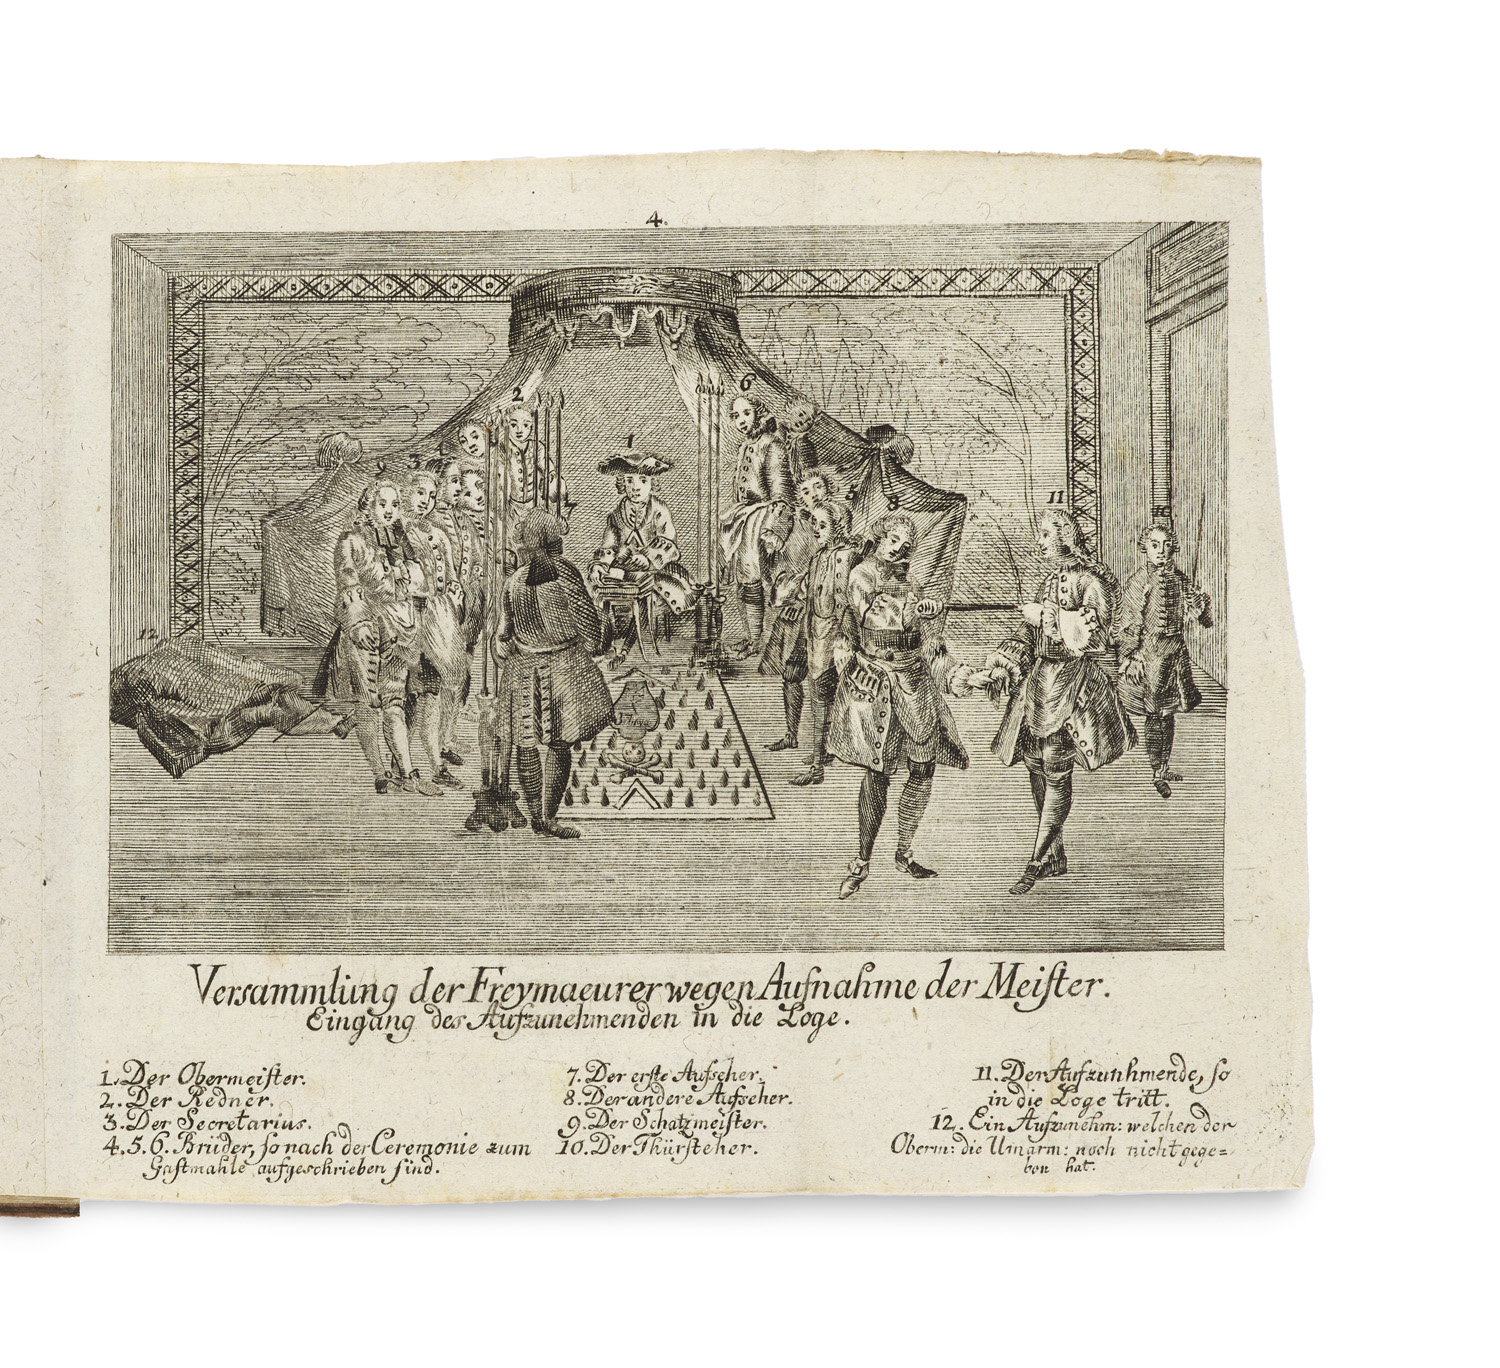 4.
6
2
1
9
3
7
5
8
11
10
12
Versammlüng der Freymaeurer wegen Aufnahme der Meister.
Eingang des Aufzunehmenden in die Loge.
1. Der Obermeister.
2. Der Redner.
3. Der Secretarius.
4. 5. 6. Brüder, so nach der Ceremonie zum
Gastmahle aufgeschrieben sind.
7. Der erste Aufseher.
8. Der andere Aufseher.
9. Der Schatzmeister.
10. Der Thürsteher.
11. Der Aufzunhmende, so
in die Loge tritt.
12. Ein Aufzunehm: welchen der
Oberm: die Umarm: noch nicht gege=
ben hat.